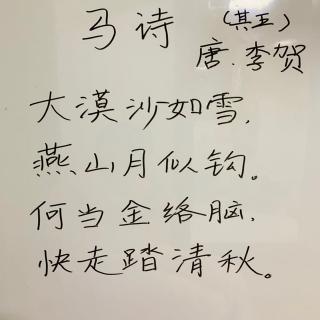 马诗 (其五)
唐.李贺
大漠沙如雪,
燕山月似钩。
何当金络脑,
快走踏清秋。